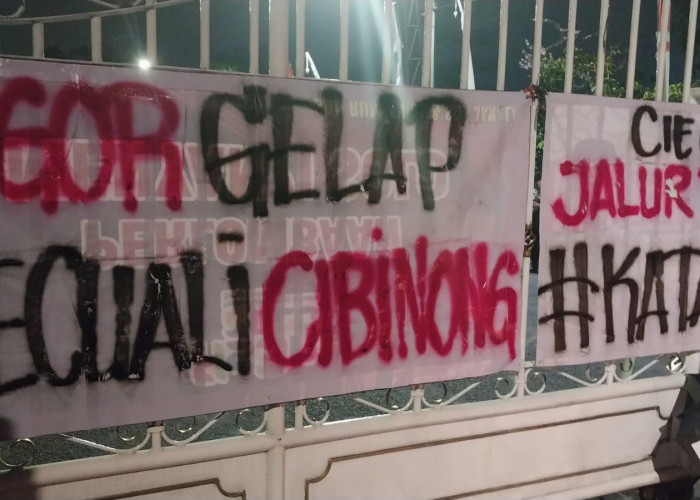 GOR GELAP
ECUALI CIBINONG
CIE
JALUR
#KATA